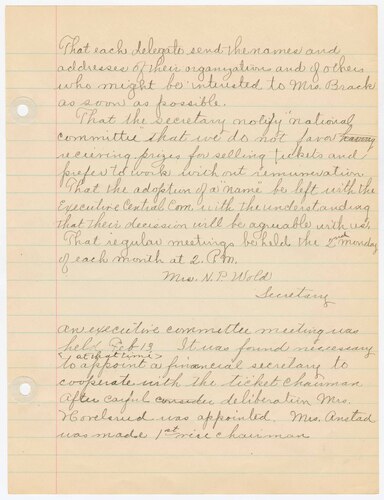 That each delegate send the names and
addresses of their organizations and of others
who might be interested to Mrs Brack
as soon as possible.
That the secretary notify national
committee that we do not favor having
recieving prizes for selling tickets and
prefer to work without remuneration.
That the adoption of a name be left with the
Executive Central Com. with the understanding
that their decision will be agreeable with us.
That regular meetings be held the 2nd Monday
of each month at 2. P.M.
Mrs. N. P. Wold
Secretary
An executive committee meeting was
held Feb 13 It was found necessary
to appoint a financial secretary to
cooperate with the ticket chairman
After careful consider deliberation Mrs.
was appointed. Mrs. Anstad
was made 1st vice chairman